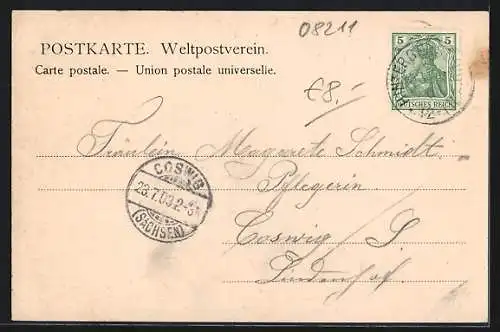 08211
POSTKARTE. Weltpostverein.
Carte postale. — Union postale universelle.
5 5
DEUTSCHES REICH
€8,-
Fräulein Margarete Schmidt
Pflegerin
COSWIG
23.7.03.2-3N
(SACHSEN)
Coswig S.
Lindenhof.